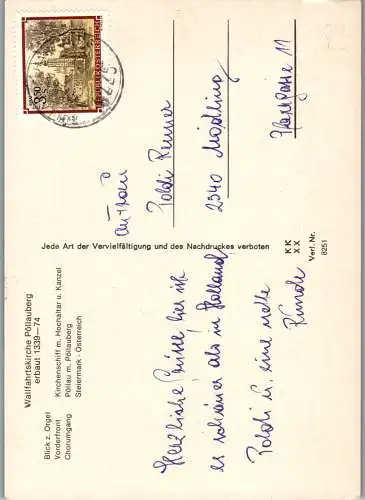 Wallfahrtskirche Pöllauberg
erbaut 1339—74
Blick z. Orgel
Vorderfront
Chorumgang
Kirchenschiff m. Hochaltar u. Kanzel
Pöllau m. Pöllauberg
Steiermark - Österreich
Jede Art der Vervielfältigung und des Nachdruckes verboten
K K
X X
Verl. Nr.
8251
Herzliche Grüße, hier ist
es schöner als in Holland
Poldi u. eine nette
Runde
REPUBLIK ÖSTERREICH
S 3.50
8225
An Frau
Poldi Renner
2340 Mödling
Pfarrgasse 11